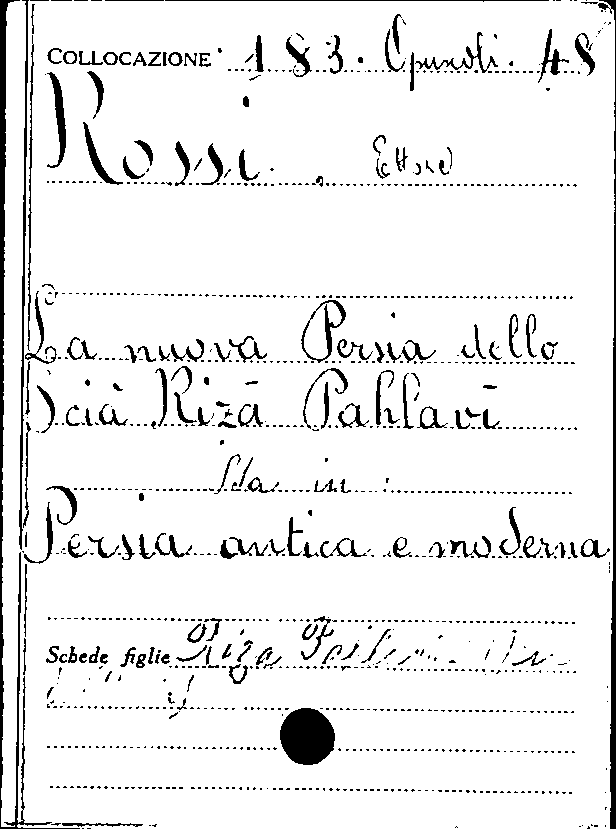 COLLOCAZIONE 183. Opuscoli. 48
Rossi. Ettore
La nuova Persia dello
Scià Rizā Pahlavī
Sta in:
Persia antica e moderna
Schede figlie Riza